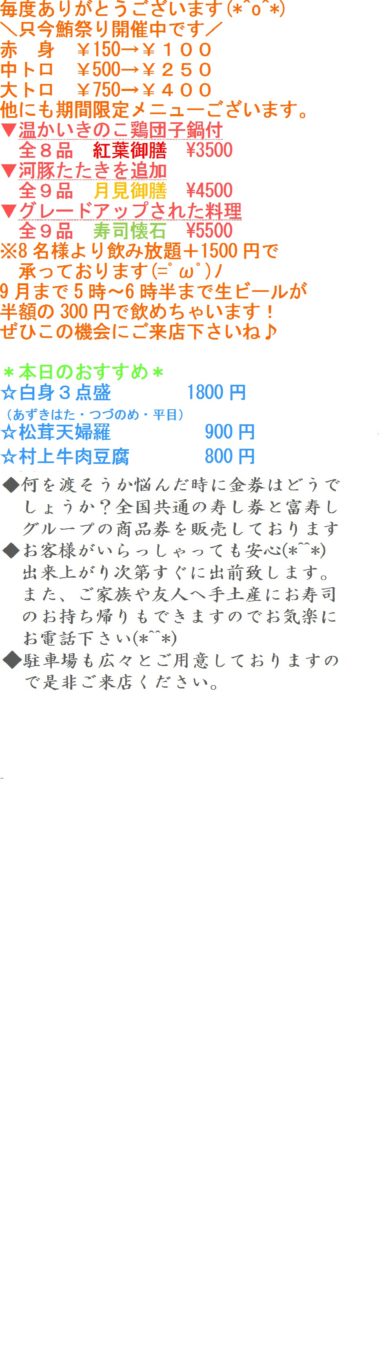 毎度ありがとうございます(*^o^*)
＼只今鮪祭り開催中です／
赤　身　￥150→￥１００
中トロ　￥500→￥２５０
大トロ　￥750→￥４００
他にも期間限定メニューございます。
▼温かいきのこ鶏団子鍋付
全８品　紅葉御膳　\3500
▼河豚たたきを追加
全９品　月見御膳　\4500
▼グレードアップされた料理
全９品　寿司懐石　\5500
※8名様より飲み放題＋1500円で
承っております(=ﾟωﾟ)ﾉ
9月まで5時～6時半まで生ビールが
半額の300円で飲めちゃいます！
ぜひこの機会にご来店下さいね♪
＊本日のおすすめ＊
☆白身３点盛　1800円
（あずきはた・つづのめ・平目）
☆松茸天婦羅　900円
☆村上牛肉豆腐　800円
◆何を渡そうか悩んだ時に金券はどうで
しょうか？全国共通の寿し券と富寿し
グループの商品券を販売しております
◆お客様がいらっしゃっても安心(*^^*)
出来上がり次第すぐに出前致します。
また、ご家族や友人へ手土産にお寿司
のお持ち帰りもできますのでお気楽に
お電話下さい(*^^*)
◆駐車場も広々とご用意しておりますの
で是非ご来店ください。